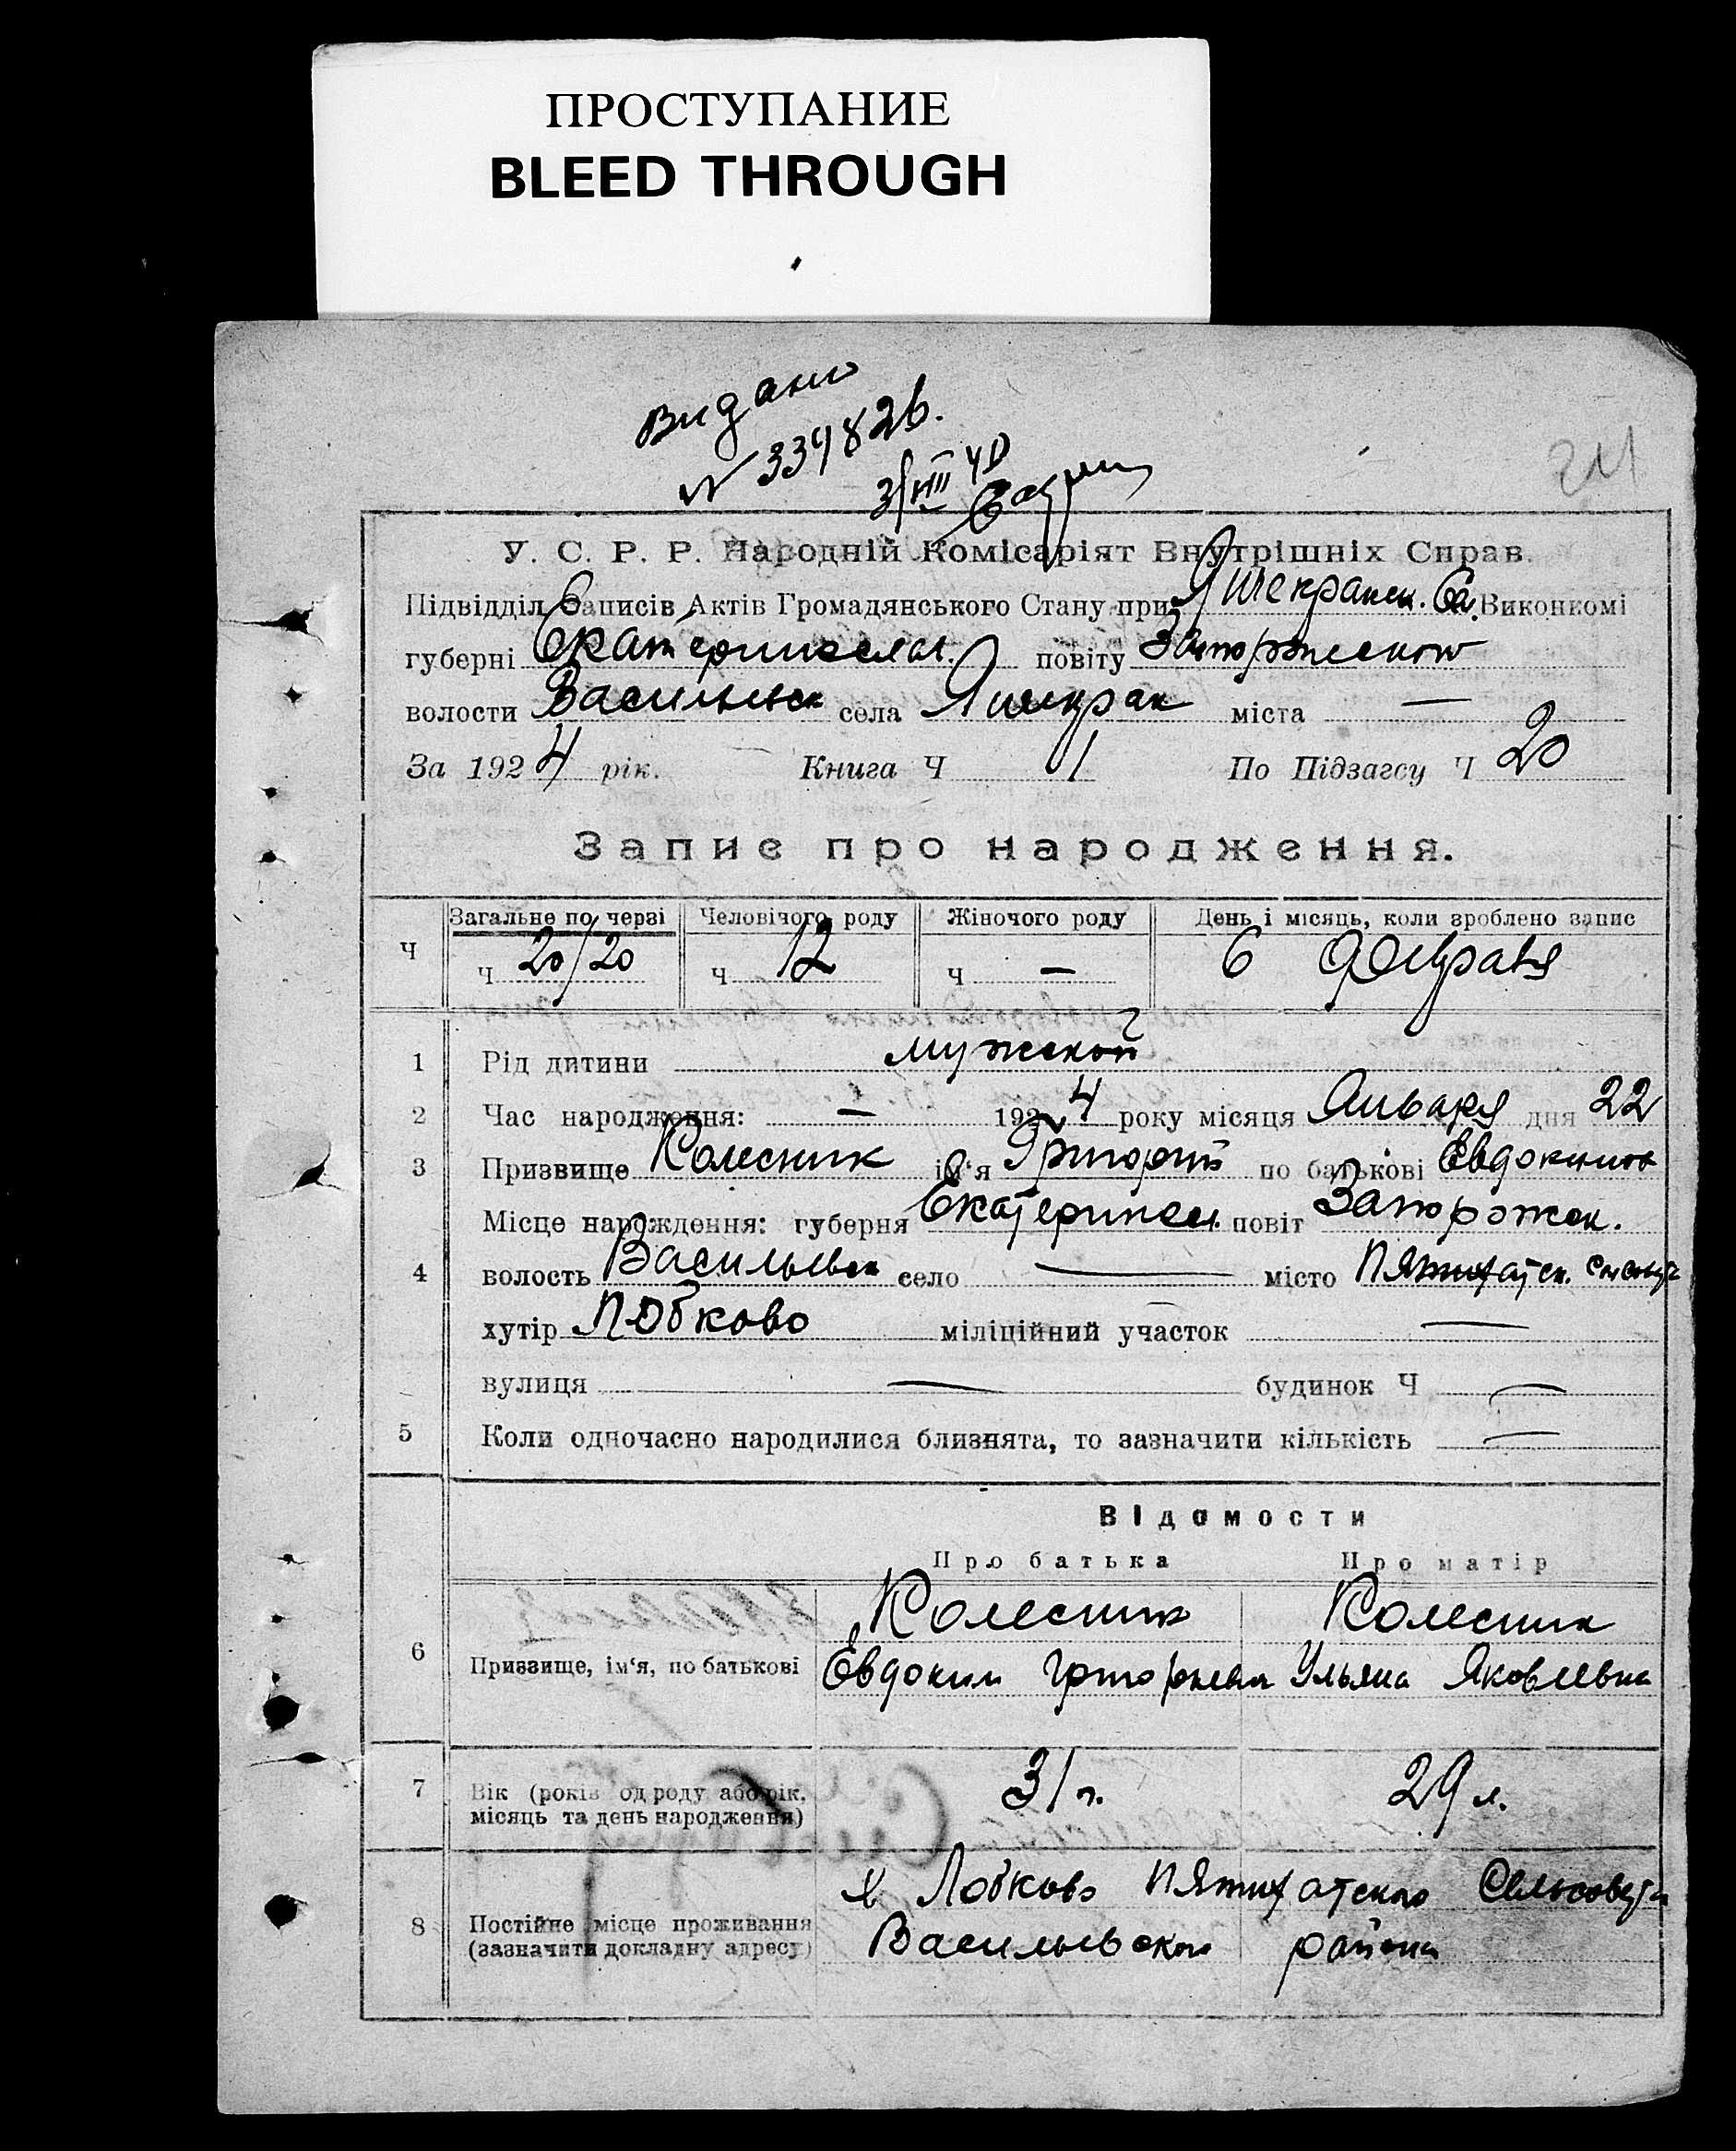 ПРОСТУПАНИЕ
BLEED THROUGH
Видано
N 339826.
3/VIII 40
211
У. С. Р. Р. Народній Комісаріят Внутрішніх Справ.
Підвідділ Записів Актів Громадянського Стану при Янчекранск. Виконкомі
губерні Екатеринослав. повіту Запорожского
волости Васильевск села Янчекрак міста —
За 1924 рік. Книга Ч 1 По Підзагсу Ч 20
Запис про народження.
Ч Загальне по черзі Человічого роду Жіночого роду День і місяць, коли зроблено запис
Ч 20/20 Ч 12 Ч — 6 Февраля
1 Рід дитини мужской
2 Час народження: — 1924 року місяця Января дня 22
3 Призвище Колесник ім'я Григорий по батькові Евдокимов
Місце народження: губерня Екатериносл. повіт Запорожск.
4 волость Васильевск село — місто Пятихатск. сельсовет
хутір Лобково міліційний участок —
вулиця — будинок Ч —
5 Коли одночасно народилися близнята, то зазначити кількість —
Відомости
Про батька Про матір
Колесник Колесник
6 Призвище, ім'я, по батькові Евдоким Григорьевич Ульяна Яковлевна
7 Вік (років од роду або рік, місяць та день народження) 31 г. 29 л.
х Лобково Пятихатского Сельсовета
8 Постійне місце проживання
(зазначити докладну адресу) Васильевского района